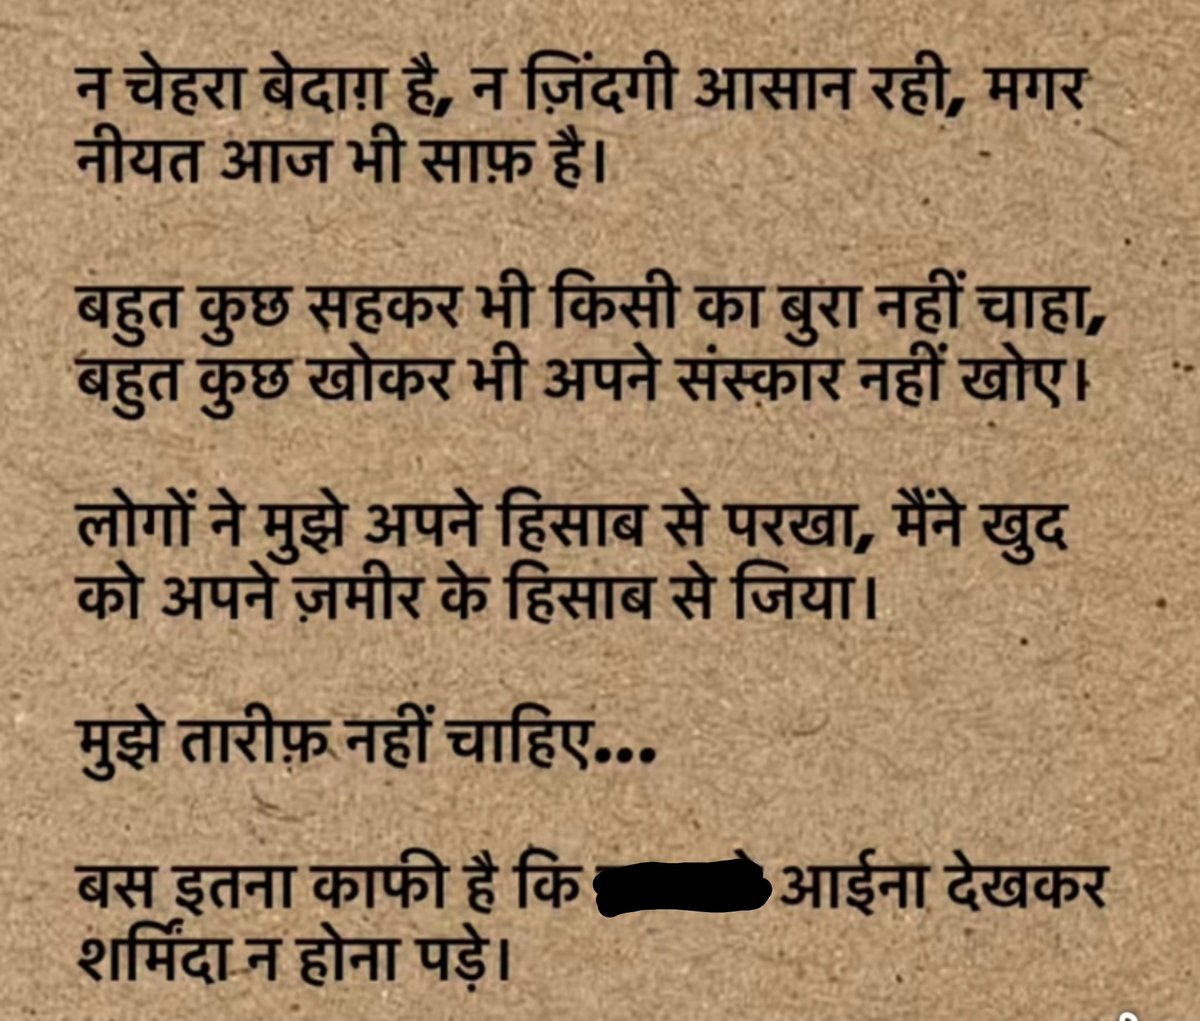 न चेहरा बेदाग़ है, न ज़िंदगी आसान रही, मगर
नीयत आज भी साफ़ है।
बहुत कुछ सहकर भी किसी का बुरा नहीं चाहा,
बहुत कुछ खोकर भी अपने संस्कार नहीं खोए।
लोगों ने मुझे अपने हिसाब से परखा, मैंने खुद
को अपने ज़मीर के हिसाब से जिया।
मुझे तारीफ़ नहीं चाहिए...
बस इतना काफी है कि आईना देखकर
शर्मिंदा न होना पड़े।